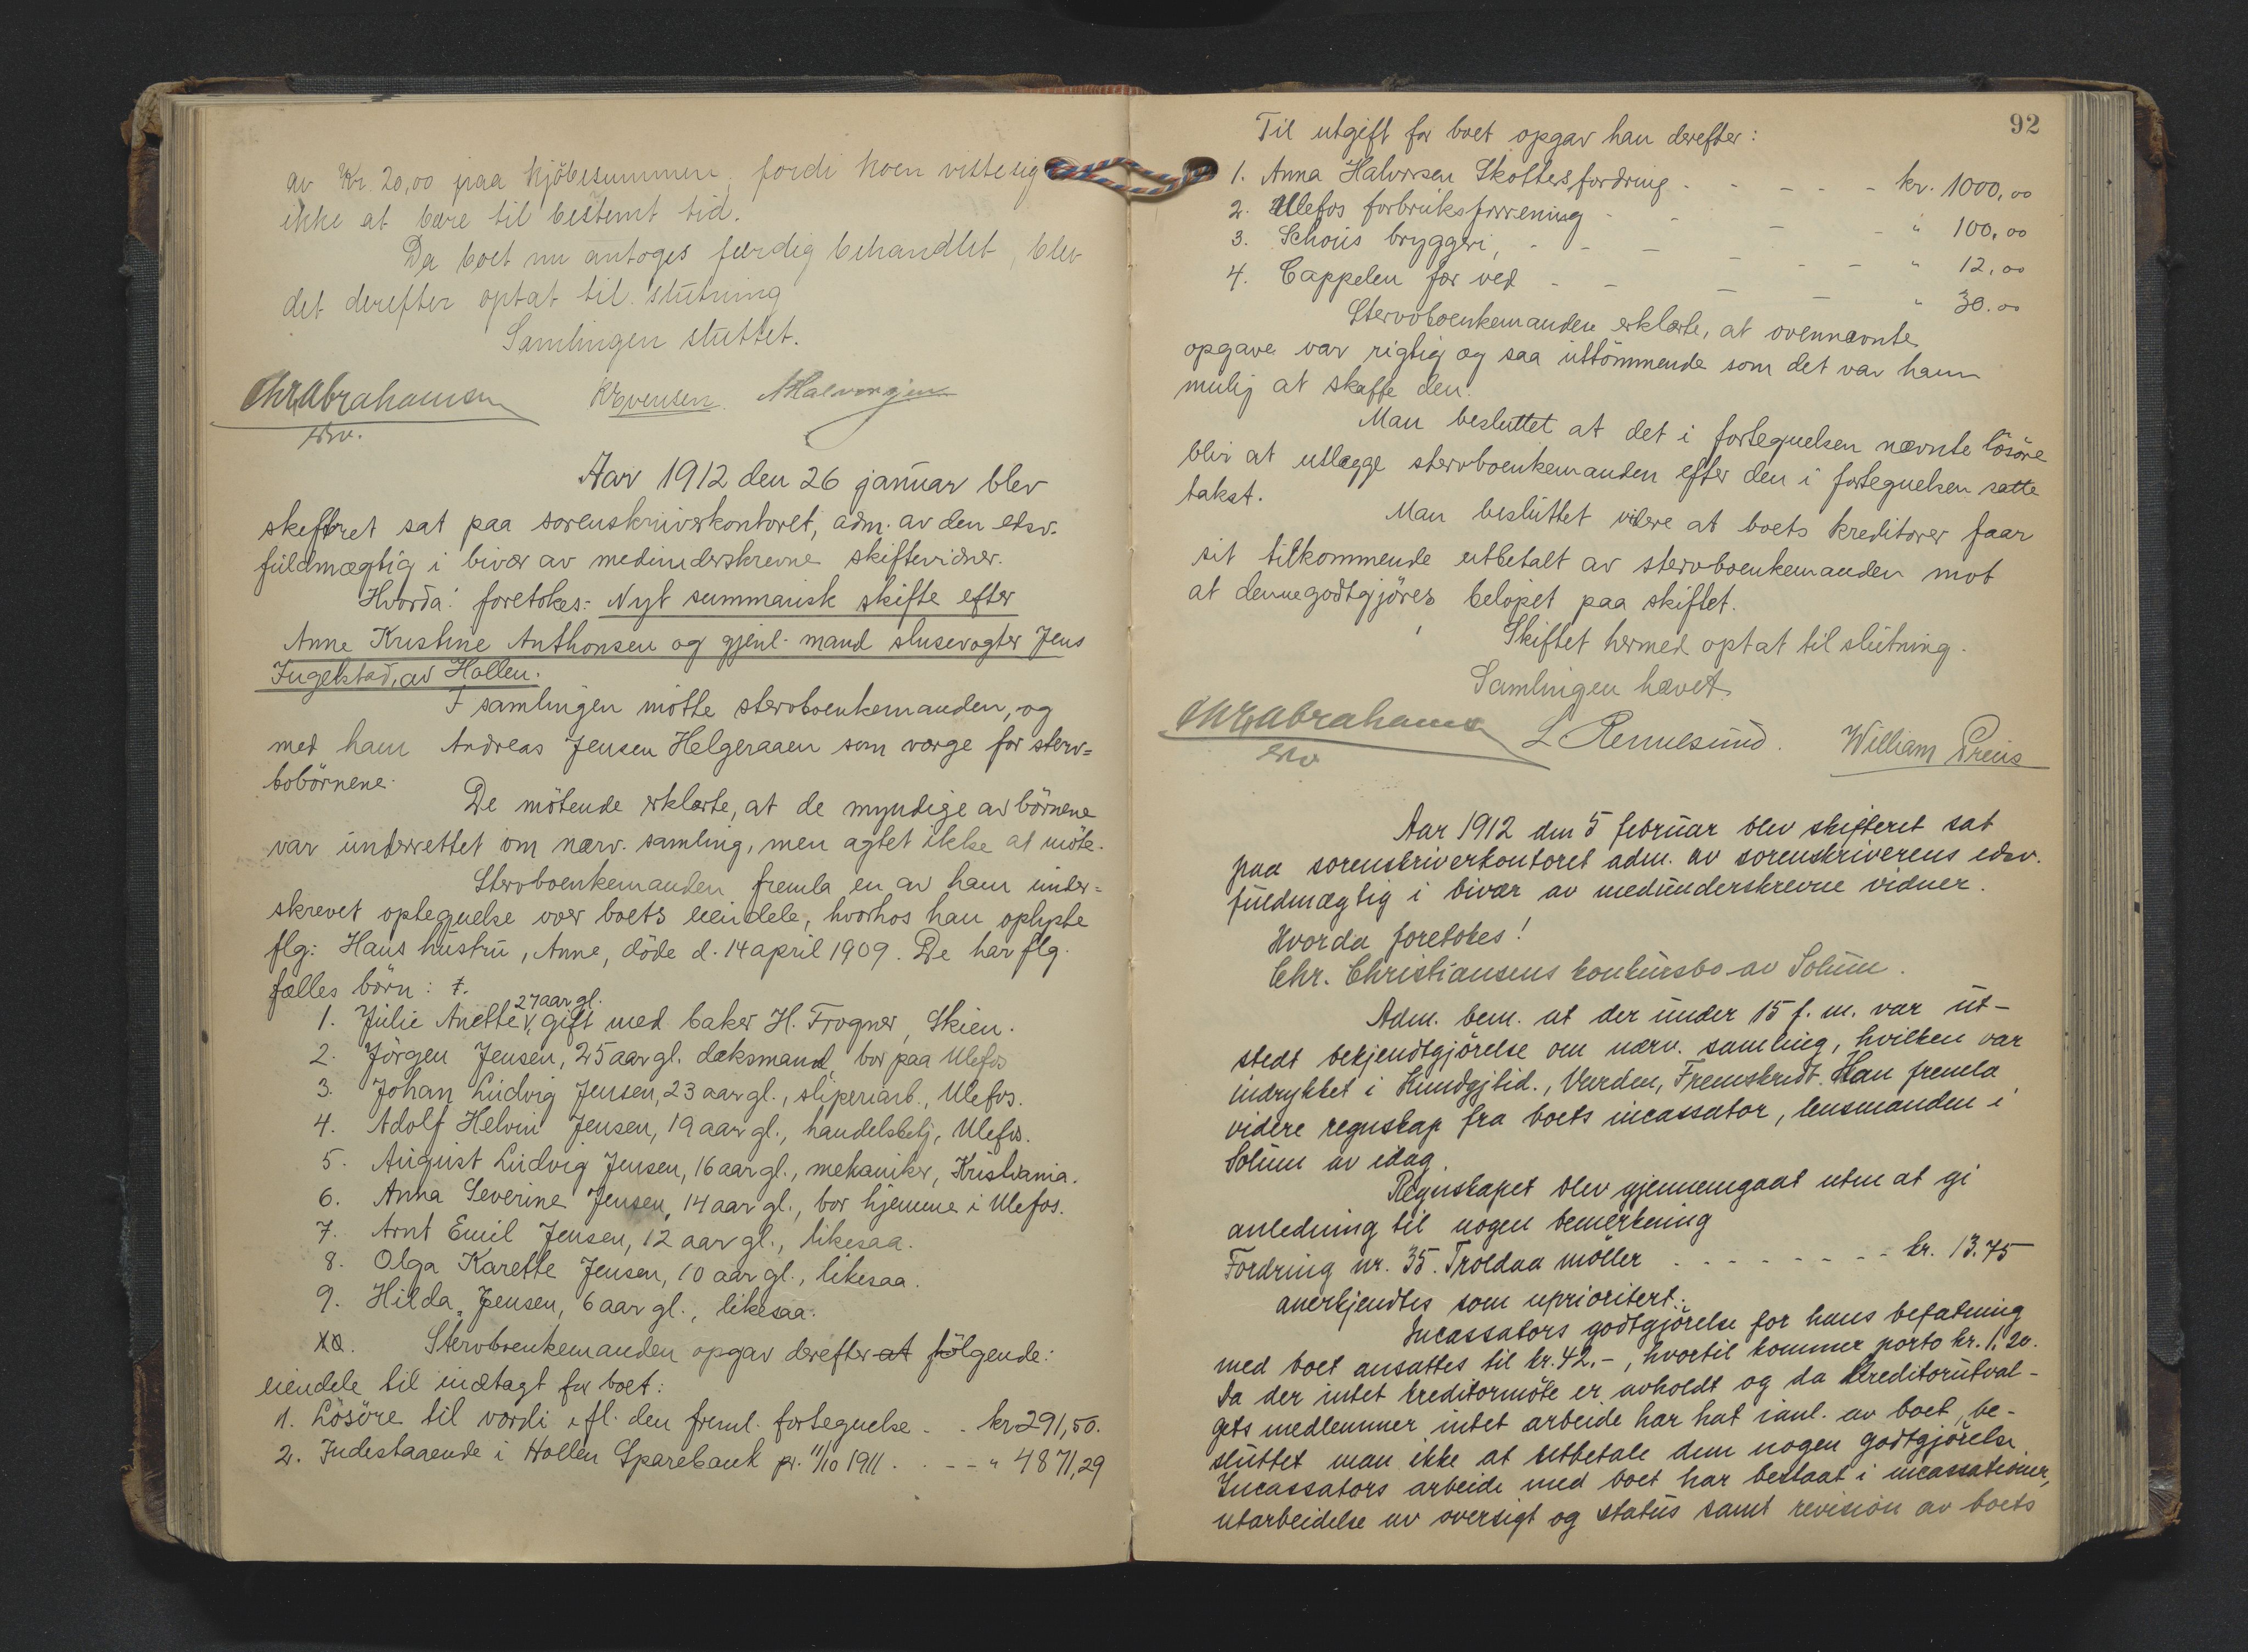 av Kr. 20,00 paa kjöbesummen, fordi koen viste sig
ikke at bære til bestemt tid.
Da boet nu antoges færdig behandlet, blev
det derefter optat til slutning
Samlingen sluttet.
Chr Abrahamsen KEvensen. AHalvorsen
edsv.
Aar 1912 den 26 januar blev
skifteret sat paa sorenskriverkontoret, adm. av den edsv.
fuldmægtig i bivær av medunderskrevne skiftevidner.
Hvorda! foretokes:- Nyt summarisk skifte efter
Anne Kristine Anthonsen og gjenl. mand slusevogter Jens
Ingelstad, av Hollen.
I samlingen mötte stervboenkemanden, og
med ham Andreas Jensen Helgeraaen som værge for sterv=
bobörnene.
De mötende erklærte, at de myndige av börnene
var underrettet om nærv. samling, men agtet ikke at möte.
Stervboenkemanden fremla en av ham under=
skrevet optegnelse over boets eiendele, hvorhos han oplyste
flg: Hans hustru, Anne, döde d. 14 april 1909. De har flg.
fælles börn:
27 aar gl.
1. Julie Anette, gift med baker H. Frogner, Skien.
2. Jörgen Jensen, 25 aar gl. dæksmand, bor paa Ulefos
3. Johan Ludvig Jensen, 23 aar gl., sliperiarb., Ulefos.
4. Adolf Helvin Jensen, 19 aar gl., handelsbetj, Ulefos.
5. August Ludvig Jensen, 16 aar gl., mekaniker, Kristiania.
6. Anna Severine Jensen, 14 aar gl., bor hjemme i Ulefos.
7. Arnt Emil Jensen, 12 aar gl., likesaa.
8. Olga Karette Jensen, 10 aar gl., likesaa.
9. Hilda Jensen, 6 aar gl., likesaa.
Stervboenkemanden opgav derefter at fölgende:
eiendele til indtægt for boet:
1. Lösöre til værdi efl. den freml. fortegnelse . . kr 291,50.
2. Indestaaende i Hollen Sparebank pr. 11/10 1911 . . - - " 4871,29
92
Til utgift for boet opgav han derefter:
1. Anna Halvorsen Skotters fordring - - - - - kr. 1000,00
2. Ulefos forbruksforrening - - - - " 100,00
3. Schous bryggeri, - - - - - - " 12,00
4. Cappelen for ved - - - - " 30.00
Stervboenkemanden erklærte, at ovennævnte
opgave var rigtig og saa uttömmende som det var ham
mulig at skaffe den.
Man besluttet at det i fortegnelsen nævnte lösöre
blir at utlægge stervboenkemanden efter den i fortegnelsen satte
takst.
Man besluttet videre at boets kreditorer faar
sit tilkommende utbetalt av stervboenkemanden mot
at denne godtgjöres belöpet paa skiftet.
Skiftet hermed optat til slutning.
Samlingen hævet
Chr Abrahamsen L Remesund. William Preus
edsv
Aar 1912 den 5 februar blev skifteret sat
paa sorenskriverkontoret adm. av sorenskriverens edsv.
fuldmægtig i bivær av medunderskrevne vidner.
Hvorda foretokes!
Chr. Christiansens konkursbo av Solum.
Adm. bem. at der under 15 f. m. var ut-
stedt bekjendtgjörelse om nærv. samling, hvilken var
indrykket i Kundgjtid., Varden, Fremskridt. Han fremla
videre regnskap fra boets incassator, lensmanden i
Solum av idag.
Regnskapet blev gjennemgaat uten at gi
anledning til nogen bemerkning
Fordring nr. 35. Troldaa möller . - - - - - - kr. 13.75
anerkjendtes som uprioritert.
Incassators godtgjörelse for hans befatning
med boet ansattes til kr. 42.-, hvortil kommer porto kr. 1,20.
Da der intet kreditormöte er avholdt og da kreditorutval-
gets medlemmer intet arbeide har hat ianl. av boet, be-
sluttet man ikke at utbetale dem nogen godtgjörelse.
Incassators arbeide med boet har bestaat i incassationer,
utarbeidelse av oversigt og status samt revision av boets